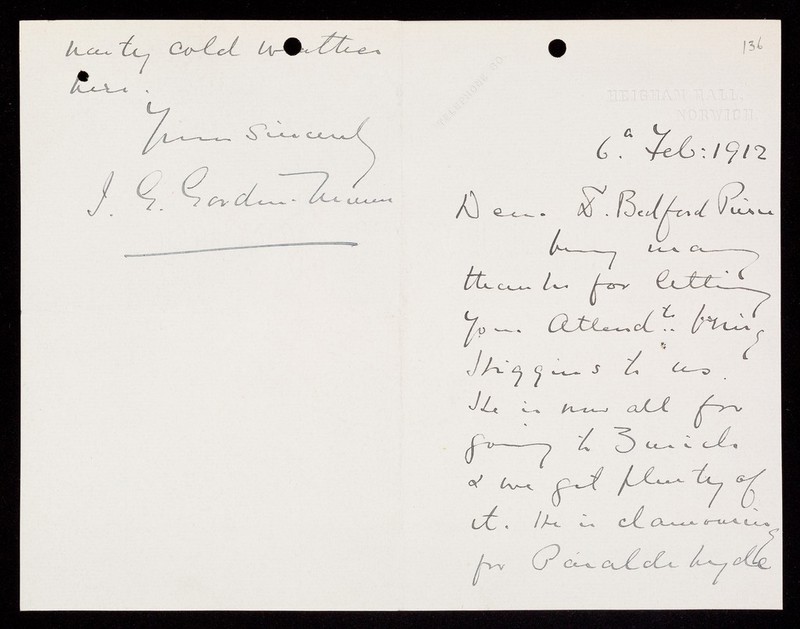 nasty cold weather
here.
Yours sincerely
J. G. Gordon-Munn
136
TELEPHONE NO.
HEIGHAM HALL,
NORWICH.
6. Feb: 1912
Dear Dr. Bedford Pierce
Very many
thanks for letting
your Attendt. bring
Higgins to us.
He is now all for
going to Zurich
& we get plenty of
it. He is clamouring
for Paraldehyde